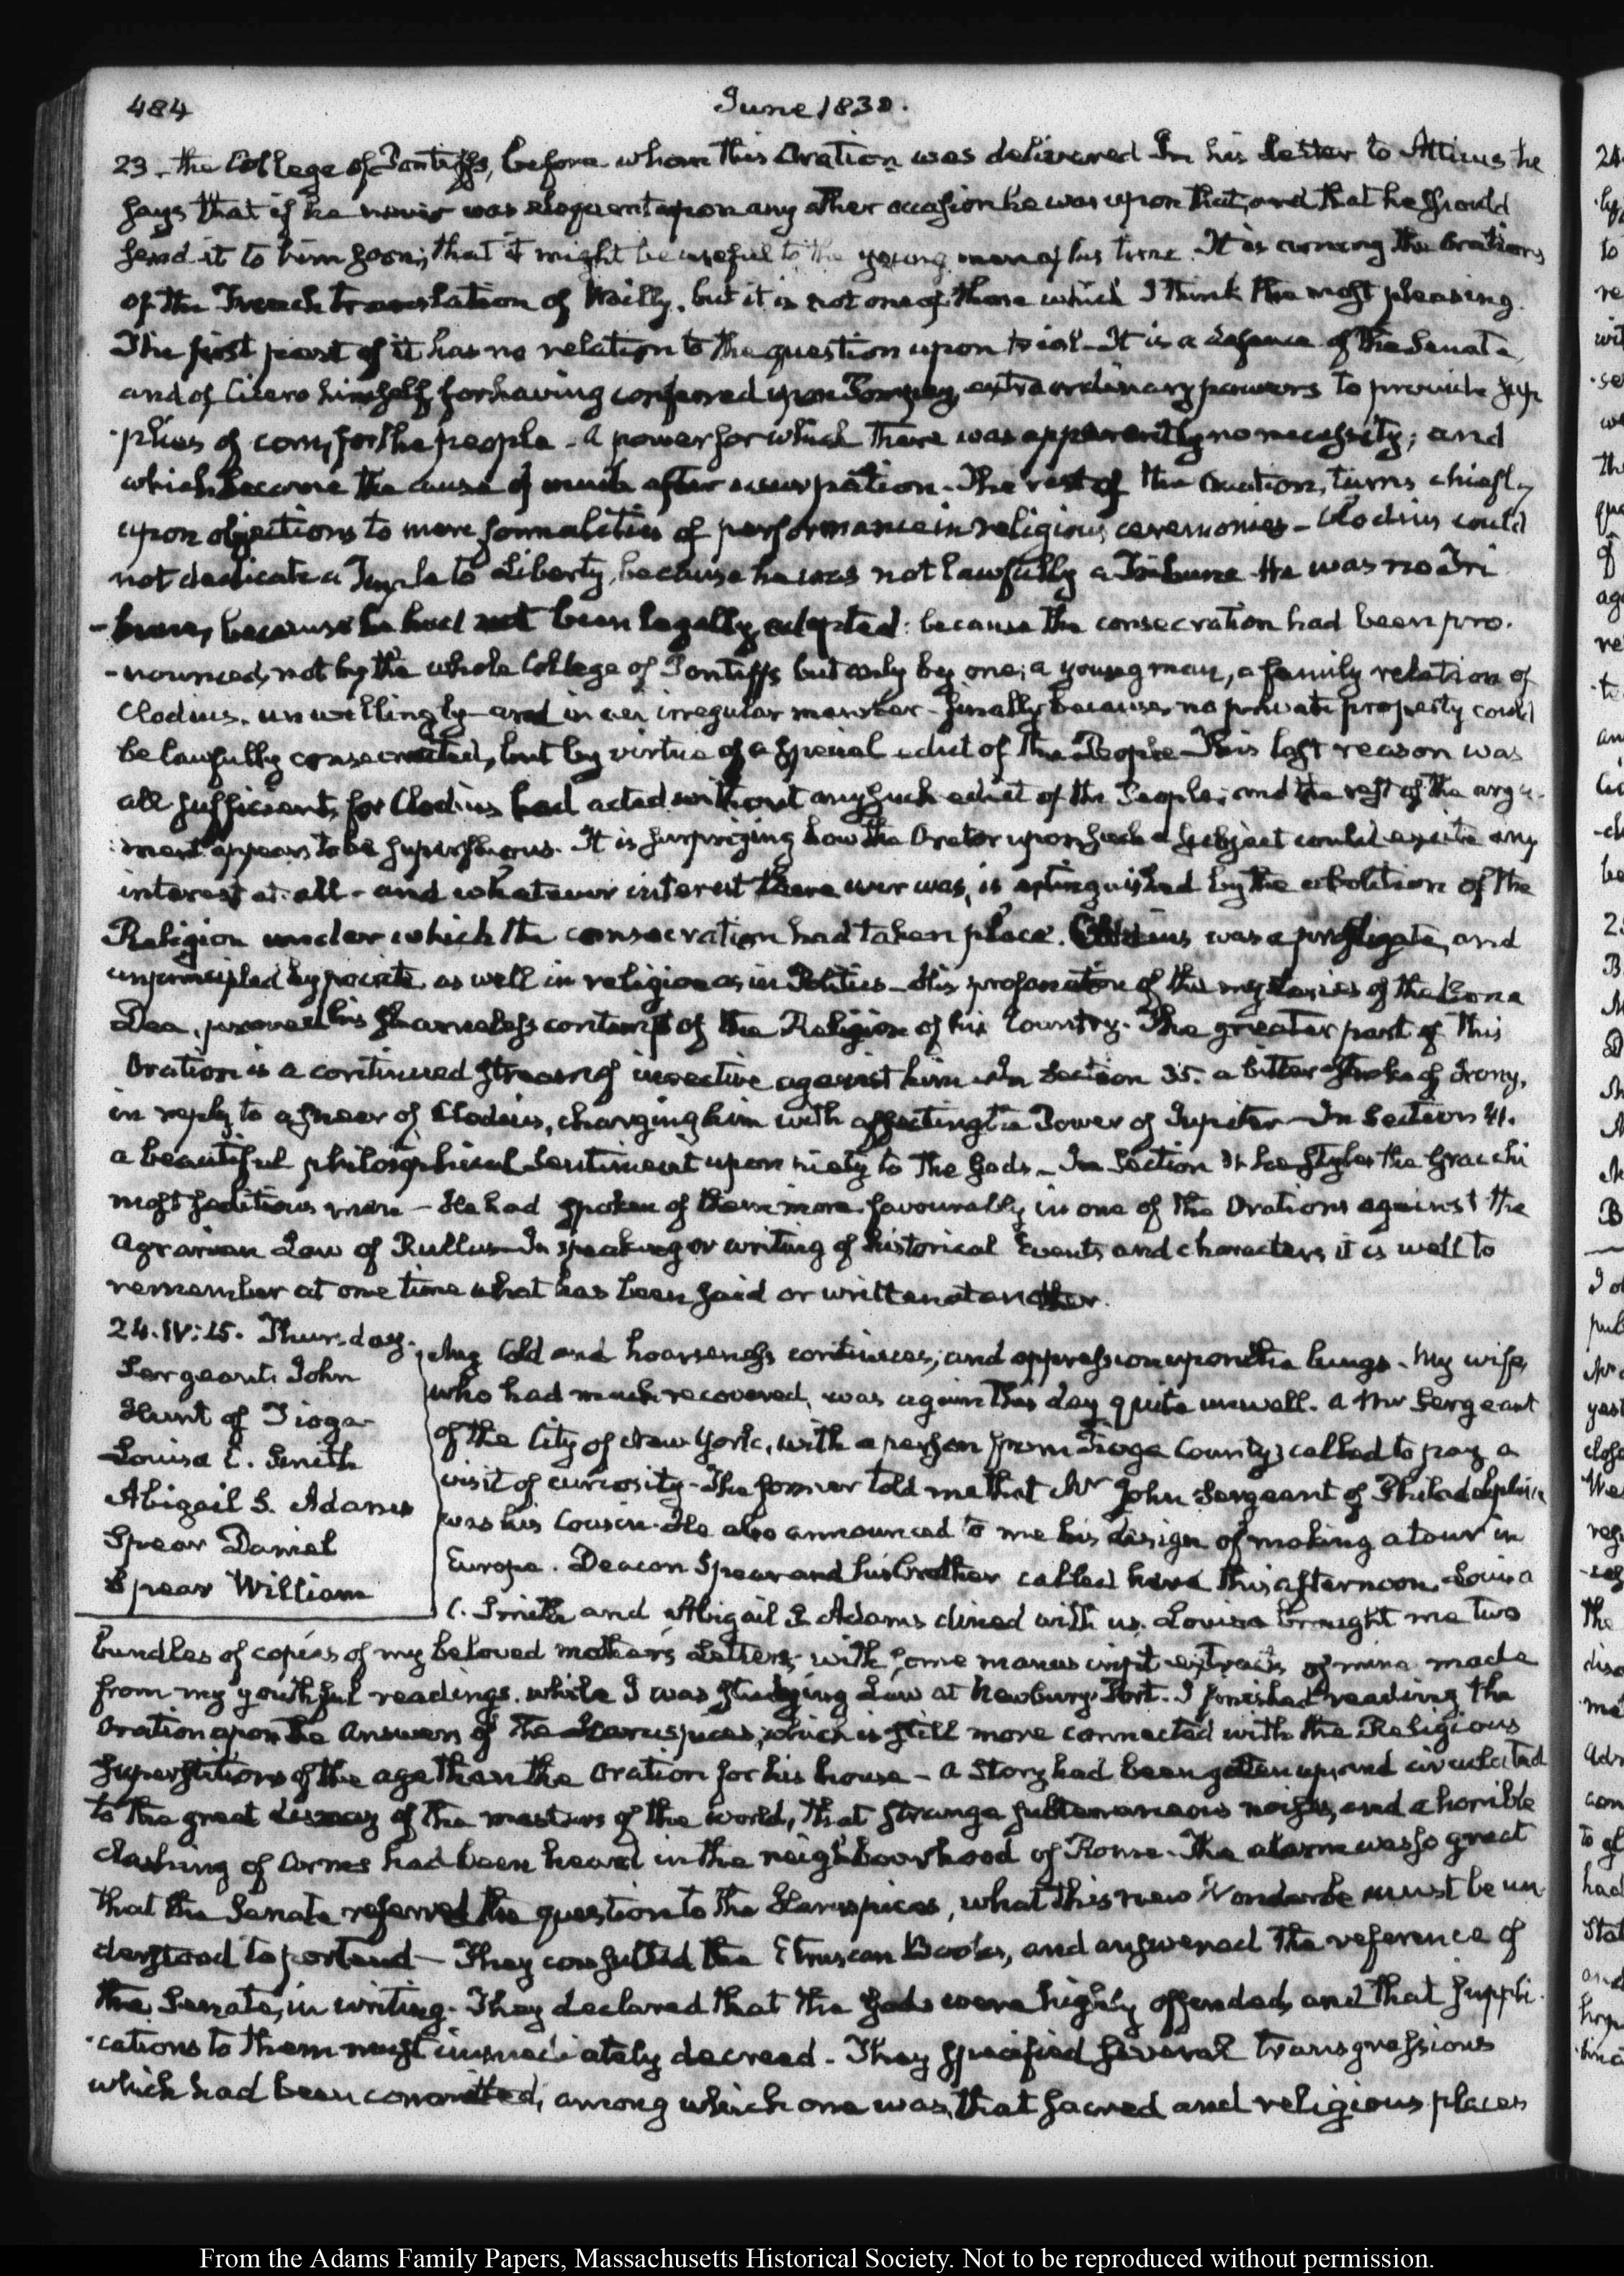 484
June 1830.
23. the College of Pontiffs, before whom this Oration was delivered In his Letter to Atticus he
says that if he never was eloquent upon any other occasion he was upon that, and that he should
send it to him soon; that it might be useful to the young men of his time. It is among the Orations
of the French translation of Wailly. but it is not one of those which I think the most pleasing.
The first part of it has no relation to the question upon trial - It is a defence of the Senate,
and of Cicero himself, for having conferred upon Pompey, extraordinary powers to provide sup
-plies of corn, for the people - a power for which there was apparently no necessity; and
which became the cause of much after usurpation. The rest of the Oration, turns chiefly
upon objections to mere formalities of performance in religious ceremonies - Clodius could
not dedicate a Temple to Liberty, because he was not lawfully a Tribune - He was no Tri
-bune, because he had not been legally adopted: because the consecration had been pro-
-nounced, not by the whole College of Pontiffs but only by one; a young man, a family relation of
Clodius. unwillingly and in an irregular manner - finally because, no private property could
be lawfully consecrated, but by virtue of a special edict of the People - This last reason was
all sufficient, for Clodius had acted without any such edict of the People; and the rest of the argu-
-ment appears to be superfluous. It is surprizing how the Orator upon such a subject could excite any
interest at all - and whatever interest there ever was, is extinguished by the abolition of the
Religion under which the consecration had taken place. Clodius was a profligate, and
unprincipled hypocrite, as well in religion as in Politics - His profanation of the mysteries of the Bona
Dea, proved his shameless contempt of the Religion of his Country. The greater part of this
Oration is a continued stream of invective against him - In Section 35. a bitter stroke of Irony,
in reply to a sneer of Clodius, charging him with affecting the Power of Jupiter - In Section 41.
a beautiful philosophical sentiment upon piety to the Gods - In Section he styles the Gracchi
most seditious men - He had spoken of them more favourably in one of the Orations against the
Agrarian Law of Rullus - In speaking or writing of historical Events and characters, it is well to
remember at one time what has been said or written at another.
24. IV:15. Thursday.
Sergeant. John
Hunt of Tioga
Louisa C. Smith
Abigail S. Adams
Spear Daniel
Spear William
My Cold and hoarseness continues; and oppression upon the lungs - My wife,
who had much recovered, was again this day quite unwell. a Mr Sergeant
of the City of New York, with a person from Tioga County; called to pay a
visit of curiosity - The former told me that Mr John Sergeant of Philadelphia
was his Cousin. He also announced to me his design of making a tour in
Europe. Deacon Spear and his brother called here this afternoon. Louisa
C. Smith and Abigail S. Adams dined with us. Louisa brought me two
bundles of copies of my beloved mother's Letters, with some manuscript extracts of mine made
from my youthful readings. while I was studying Law at Newbury-Port. I finished reading the
Oration upon the Answers of the Haruspices, which is still more connected with the Religious
Superstitions of the age than the Oration for his house - a Story had been gotten up, and circulated
to the great dismay of the masters of the world, that strange subterraneous noises, and a horrible
clashing of arms had been heard in the neighbourhood of Rome. The alarm was so great
that the Senate referred the question to the Haruspices, what this new Wonder must be un-
derstood to portend - They consulted the Etruscan Books, and answered the reference of
the Senate, in writing. They declared that the Gods were highly offended, and that suppli-
-cations to them must immediately decreed - They specified several transgressions
which had been committed, among which one was, that sacred and religious places
From the Adams Family Papers, Massachusetts Historical Society. Not to be reproduced without permission.